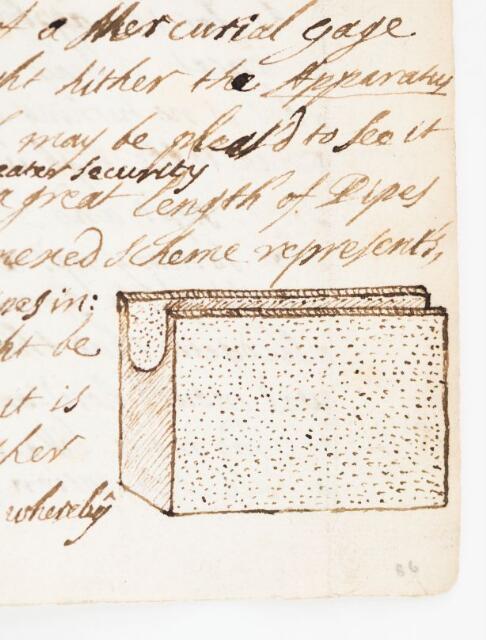 of a Mercurial gage
ht hither the Apparatus
may be pleas'd to See it
eater security
a great length of Pipes
nexed scheme represents,
nes in:
ht be
it is
ther
whereby
86